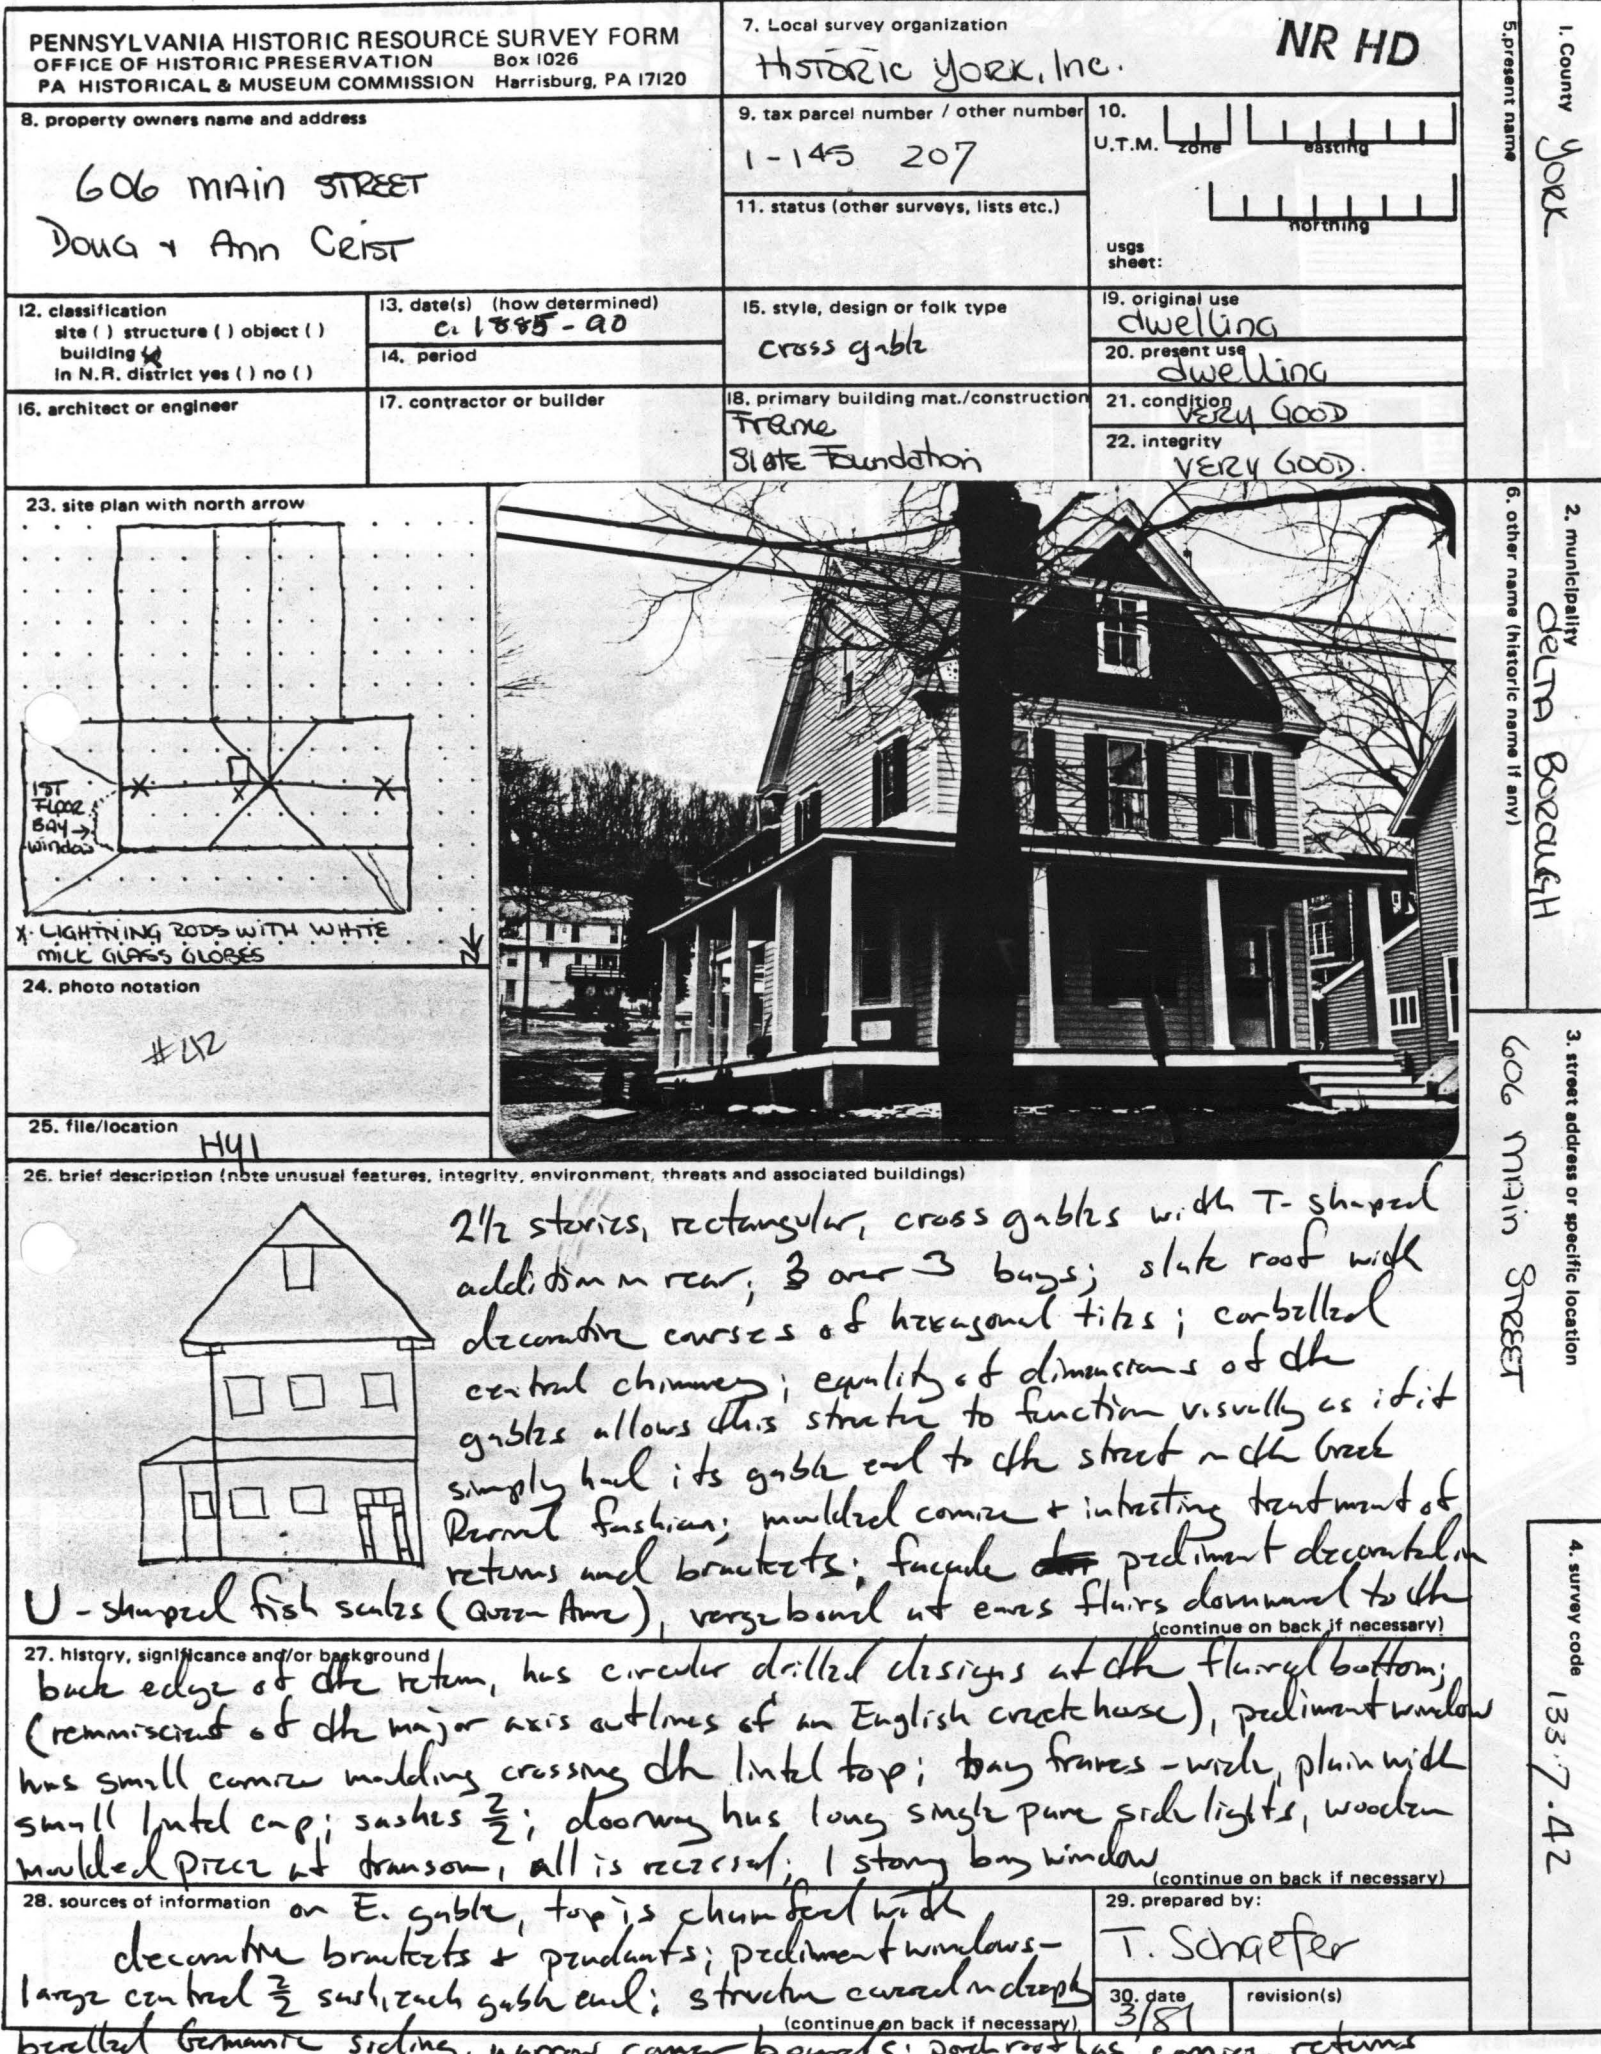 PENNSYLVANIA HISTORIC RESOURCE SURVEY FORM
OFFICE OF HISTORIC PRESERVATION Box 1026
PA HISTORICAL & MUSEUM COMMISSION Harrisburg, PA 17120
7. Local survey organization
HISTORIC YORK, Inc.
NR HD
8. property owners name and address
606 MAIN STREET
DOUG + Ann CRIST
9. tax parcel number / other number
1-145 207
10.
U.T.M.
zone
easting
northing
usgs
sheet:
11. status (other surveys, lists etc.)
12. classification
site ( ) structure ( ) object ( )
building (x)
in N.R. district yes ( ) no ( )
13. date(s) (how determined)
c. 1885-90
14. period
15. style, design or folk type
cross gable
16. architect or engineer
17. contractor or builder
18. primary building mat./construction
Frame
Slate Foundation
19. original use
dwelling
20. present use
dwelling
21. condition
VERY GOOD
22. integrity
VERY GOOD.
23. site plan with north arrow
1ST
FLOOR
BAY →
window
N
X- LIGHTNING RODS WITH WHITE
MILK GLASS GLOBES
24. photo notation
#42
25. file/location
HYI
26. brief description (note unusual features, integrity, environment, threats and associated buildings)
2½ stories, rectangular, cross gables with T-shaped
addition in rear; 3 over 3 bays; slate roof with
decorative courses of hexagonal tiles; corbelled
central chimney; equality of dimensions of the
gables allows this structure to function visually as if it
simply had its gable end to the street in the Greek
Revival fashion; moulded cornice + intresting treatment of
returns and brackets; facade pediment decorated in
U-shaped fish scales (Queen Anne), vergeboard at eaves flairs downward to the
(continue on back if necessary)
27. history, significance and/or background
back edge of the return, has circular drilled designs at the flaired bottom;
(reminiscient of the major axis outlines of an English house), pediment window
has small cornice moulding crossing the lintel top; bay frames - wide, plain with
small lintel cap; sashes 2/2; doorway has long single pane side lights, wooden
moulded piece at transom, all is recessed; 1 story bay window
(continue on back if necessary)
28. sources of information
on E. gable, top is chamfered with
decorative brackets + pendants; pediment windows-
large central 2/2 sash, each gable end; structure covered in deeply
(continue on back if necessary)
bevelled Germanic siding, narrow corner boards; porch roof has cornice returns
29. prepared by:
T. Schaefer
30. date
3/81
revision(s)
1. County
YORK
5. present name
2. municipality
DELTA BOROUGH
6. other name (historic name if any)
3. street address or specific location
606 MAIN STREET
4. survey code
133.7.42